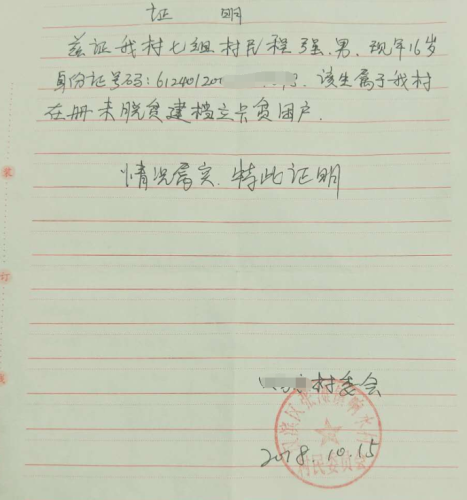 证 明
兹证我村七组村民程强、男、现年16岁
身份证号码:61240120 该生属于我村
在册未脱贫建档立卡贫困户.
情况属实、特此证明
村委会
2018.10.15
装
订
村民委员会